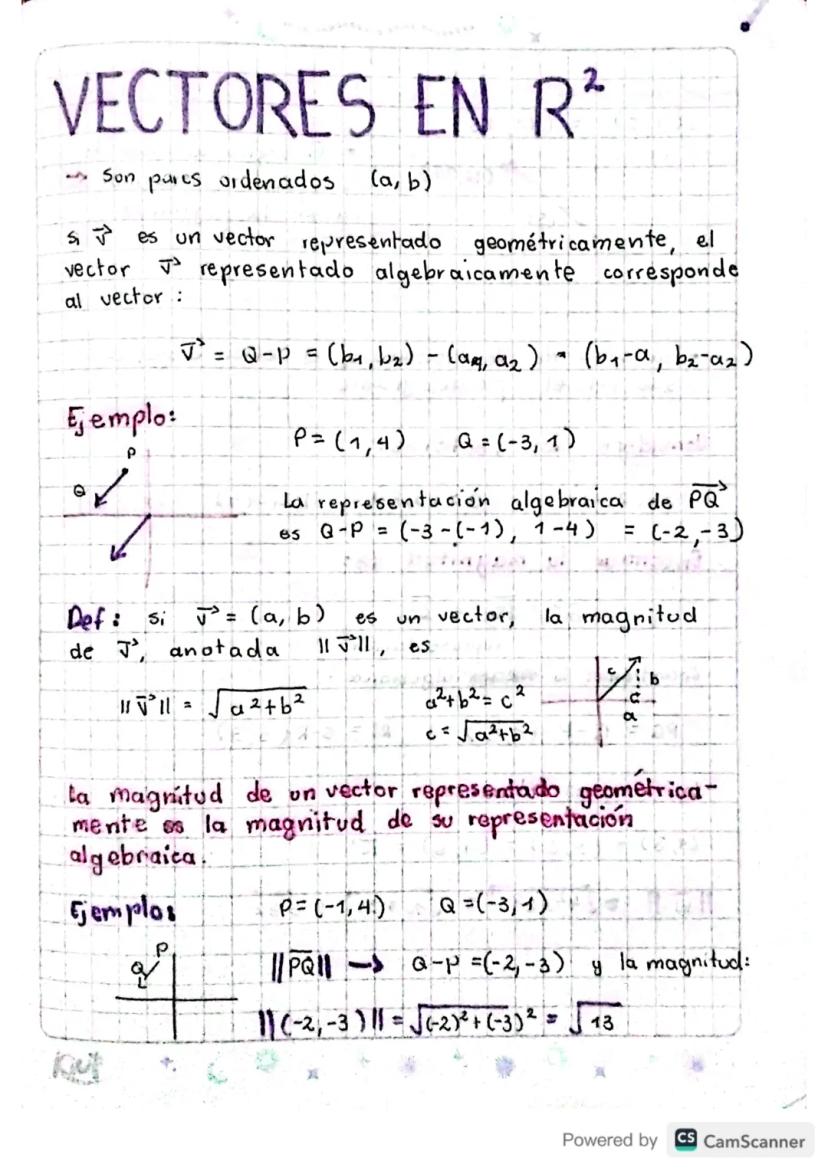 VECTORES EN R²
→ Son pares ordenados (a, b)
si v⃗ es un vector representado geométricamente, el
vector v⃗ representado algebraicamente corresponde
al vector :
v⃗ = Q-P = (b₁, b₂) - (a₁, a₂) = (b₁-a, b₂-a₂)
Ejemplo:
P = (1, 4) Q = (-3, 1)
P
Q
La representación algebraica de PQ⃗
es Q-P = (-3-(-1), 1-4) = (-2, -3)
Def: si v⃗ = (a, b) es un vector, la magnitud
de v⃗, anotada ||v⃗||, es
||v⃗|| = √a²+b²
a²+b²=c²
c = √a²+b²
c
b
c
a
La magnitud de un vector representado geométrica-
mente es la magnitud de su representación
algebraica.
Ejemplo:
P = (-1, 4) Q = (-3, 1)
P
Q
||PQ|| → Q-P = (-2, -3) y la magnitud:
||(-2, -3)|| = √(-2)²+(-3)² = √13
Powered by CS CamScanner